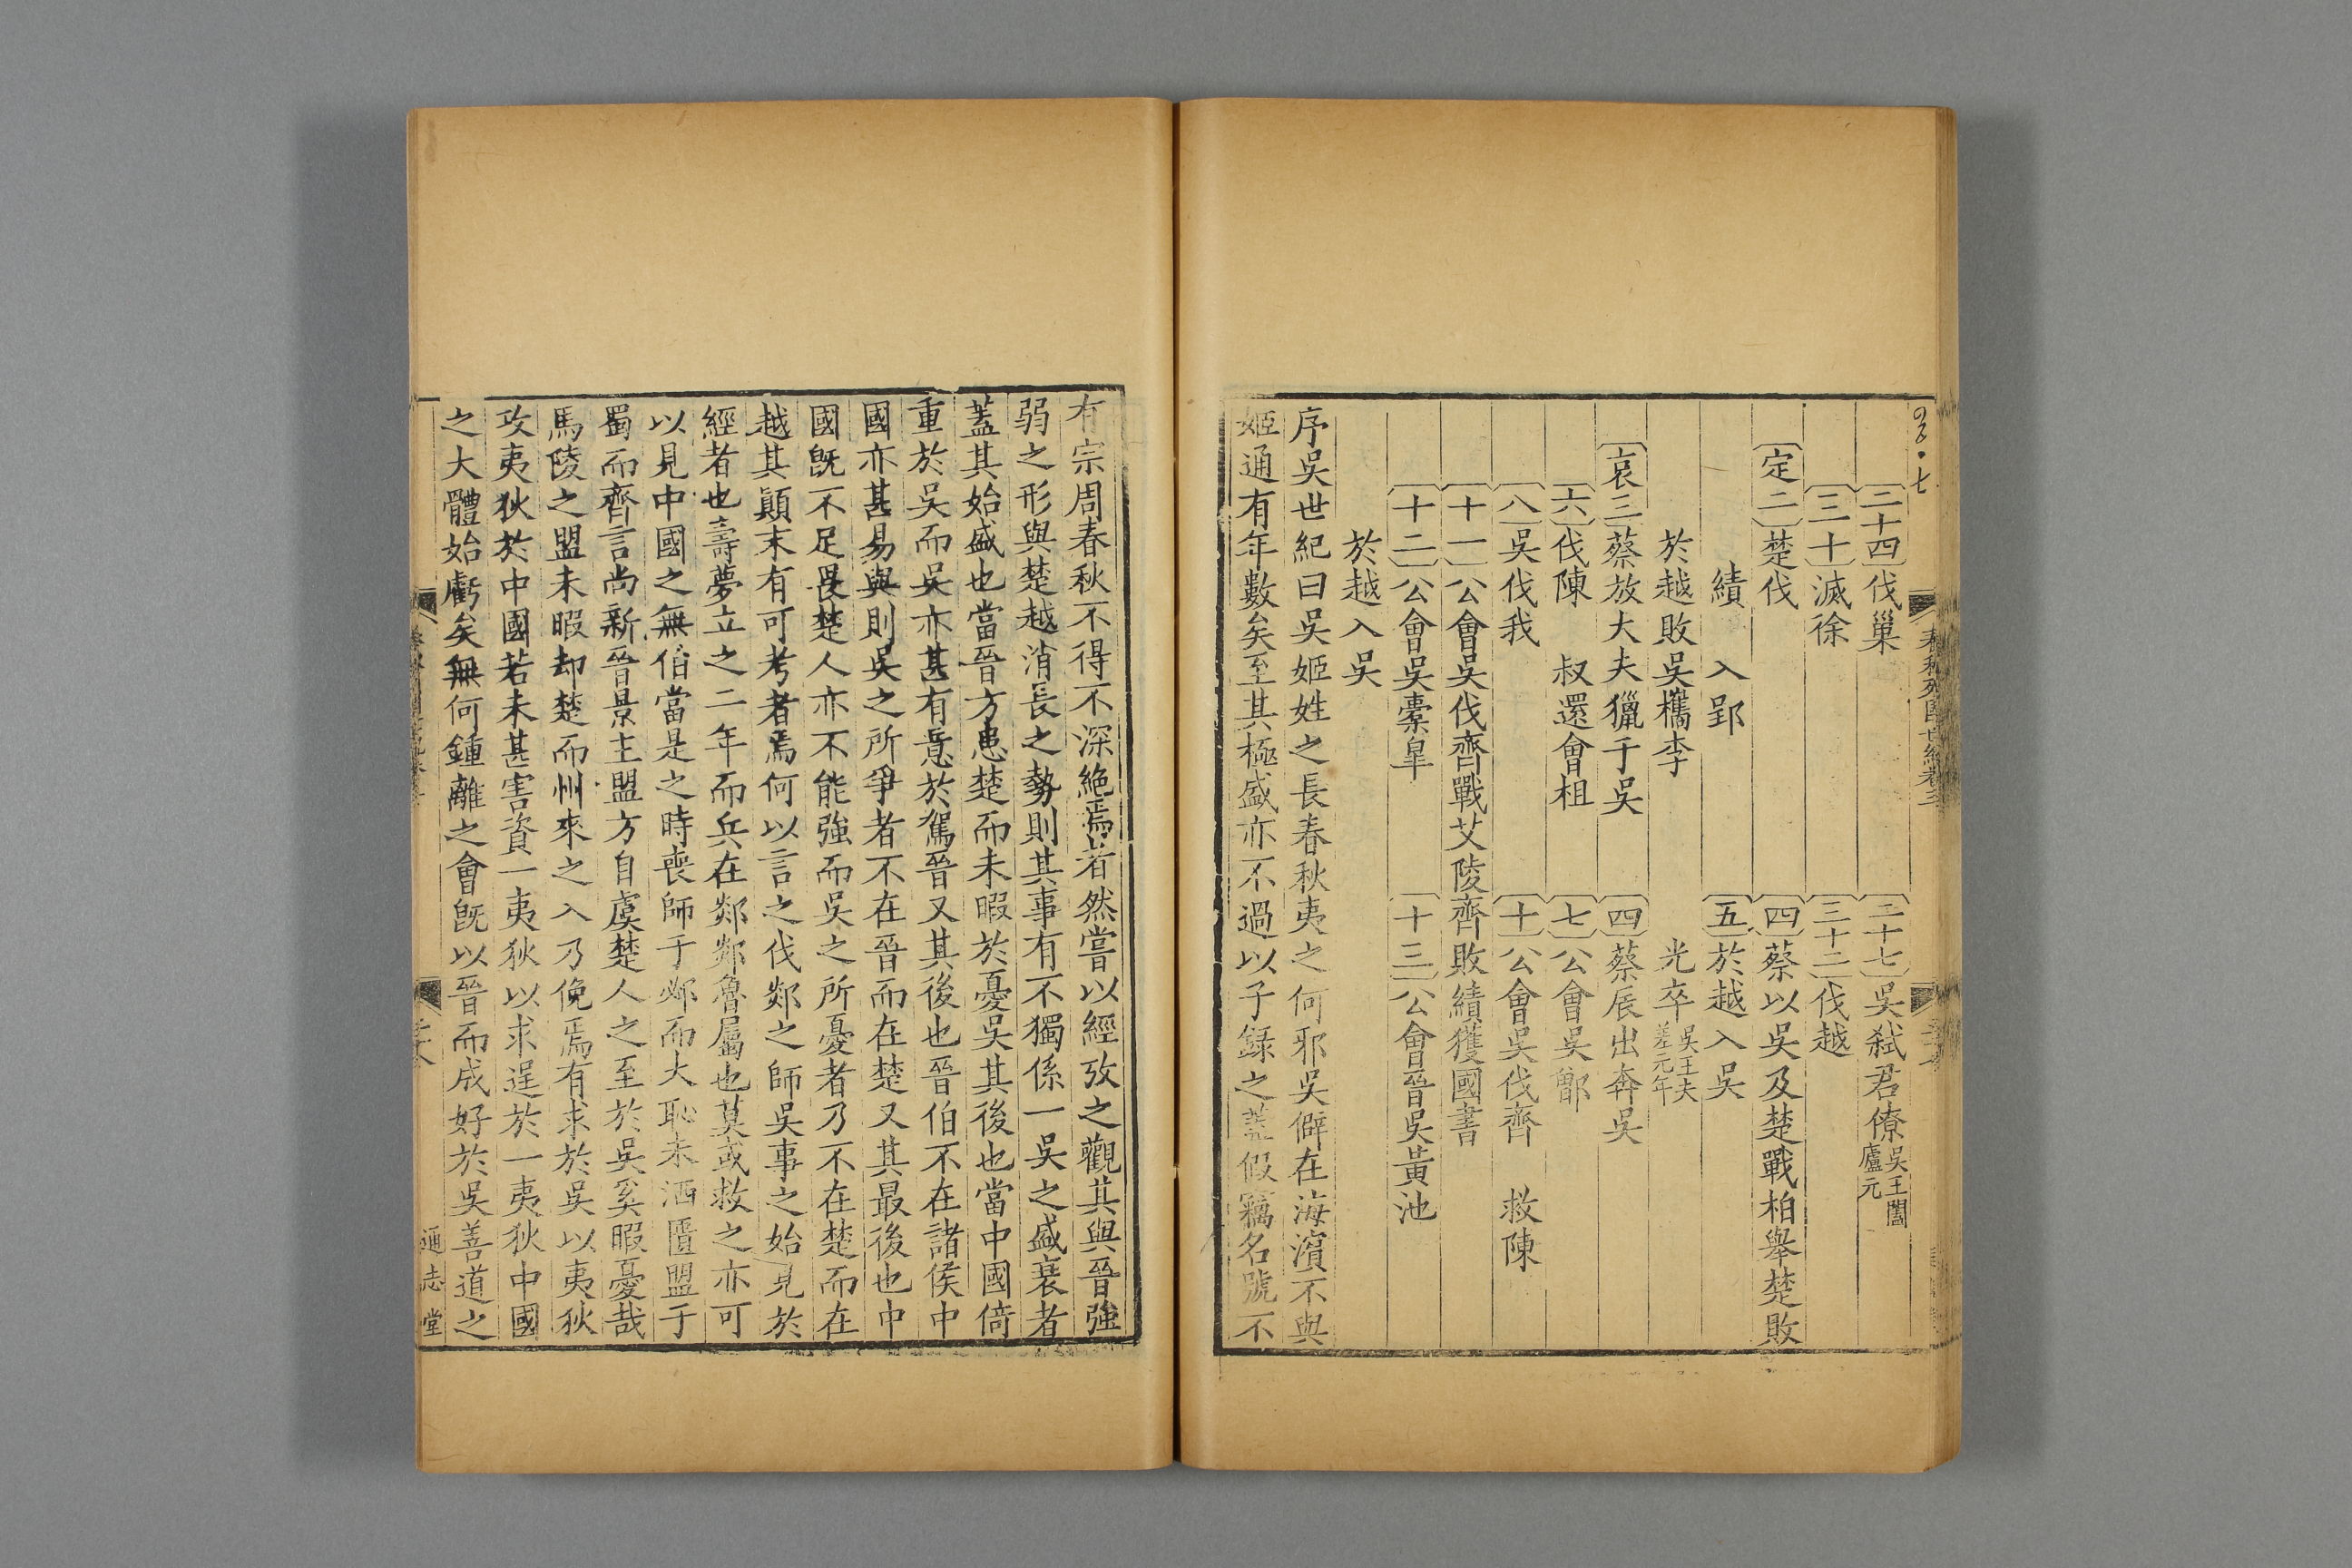 二十四伐巢　二十七吳弑君僚吳王闔廬元
三十滅徐　三十二伐越
定二楚伐　四蔡以吳及楚戰柏舉楚敗
績　入郢　五於越入吳
於越敗吳檇李　光卒吳王夫差元年
哀二蔡放大夫獵于吳　四蔡辰出奔吳
六伐陳　叔還會柤　七公會吳鄫
八吳伐我　十公會吳伐齊　救陳
十一公會吳伐齊戰艾陵齊敗績獲國書
十二公會吳橐皐　十三公會晉吳黃池
於越入吳
序吳世紀曰吳姬姓之長春秋夷之何邪吳僻在海濱不與
姬通有年數矣至其極盛亦不過以子録之蓋假竊名號不
有宗周春秋不得不深絶焉者然嘗以經攷之觀其與晉強
弱之形與楚越消長之勢則其事有不獨係一吳之盛衰者
蓋其始盛也當晉方患楚而未暇於憂吳其後也當中國倚
重於吳而吳亦甚有意於駕晉又其後也晉伯不在諸侯中
國亦甚易與則吳之所爭者不在晉而在楚又其最後也中
國旣不足畏楚人亦不能強而吳之所憂者乃不在楚而在
越其顚末有可考者焉何以言之伐郯之師吳事之始見於
經者也壽夢立之二年而兵在郯郯魯屬也莫或救之亦可
以見中國之無伯當是之時喪師于邲而大恥未洒匱盟于
蜀而齊言尚新晉景主盟方自虞楚人之至於吳奚暇憂哉
馬陵之盟未暇却楚而州來之入乃俛焉有求於吳以夷狄
攻夷狄於中國若未甚害資一夷狄以求逞於一夷狄中國
之大體始虧矣無何鍾離之會旣以晉而成好於吳善道之
通志堂